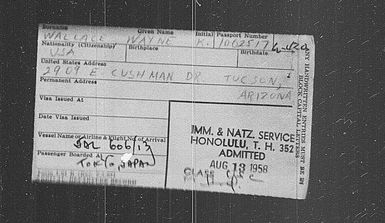 Surname Given Name Initial Passport Number
WALLACE WAYNE K. 1062517
Nationality (Citizenship) Birthplace Birthdate
USA
United States Address
2909 E CUSHMAN DR TUCSON,
Permanent Address
ARIZONA
Visa Issued At
Date Visa Issued
Vessel Name or Airline & Flight No. of Arrival
JAL 606/13
Passenger Boarded At
TOKYO, JAPAN
IMM. & NATZ. SERVICE
HONOLULU, T. H. 352
ADMITTED
AUG 13 1958
CLASS
ANY HANDWRITTEN ENTRIES MUST BE IN
BLOCK CAPITAL LETTERS